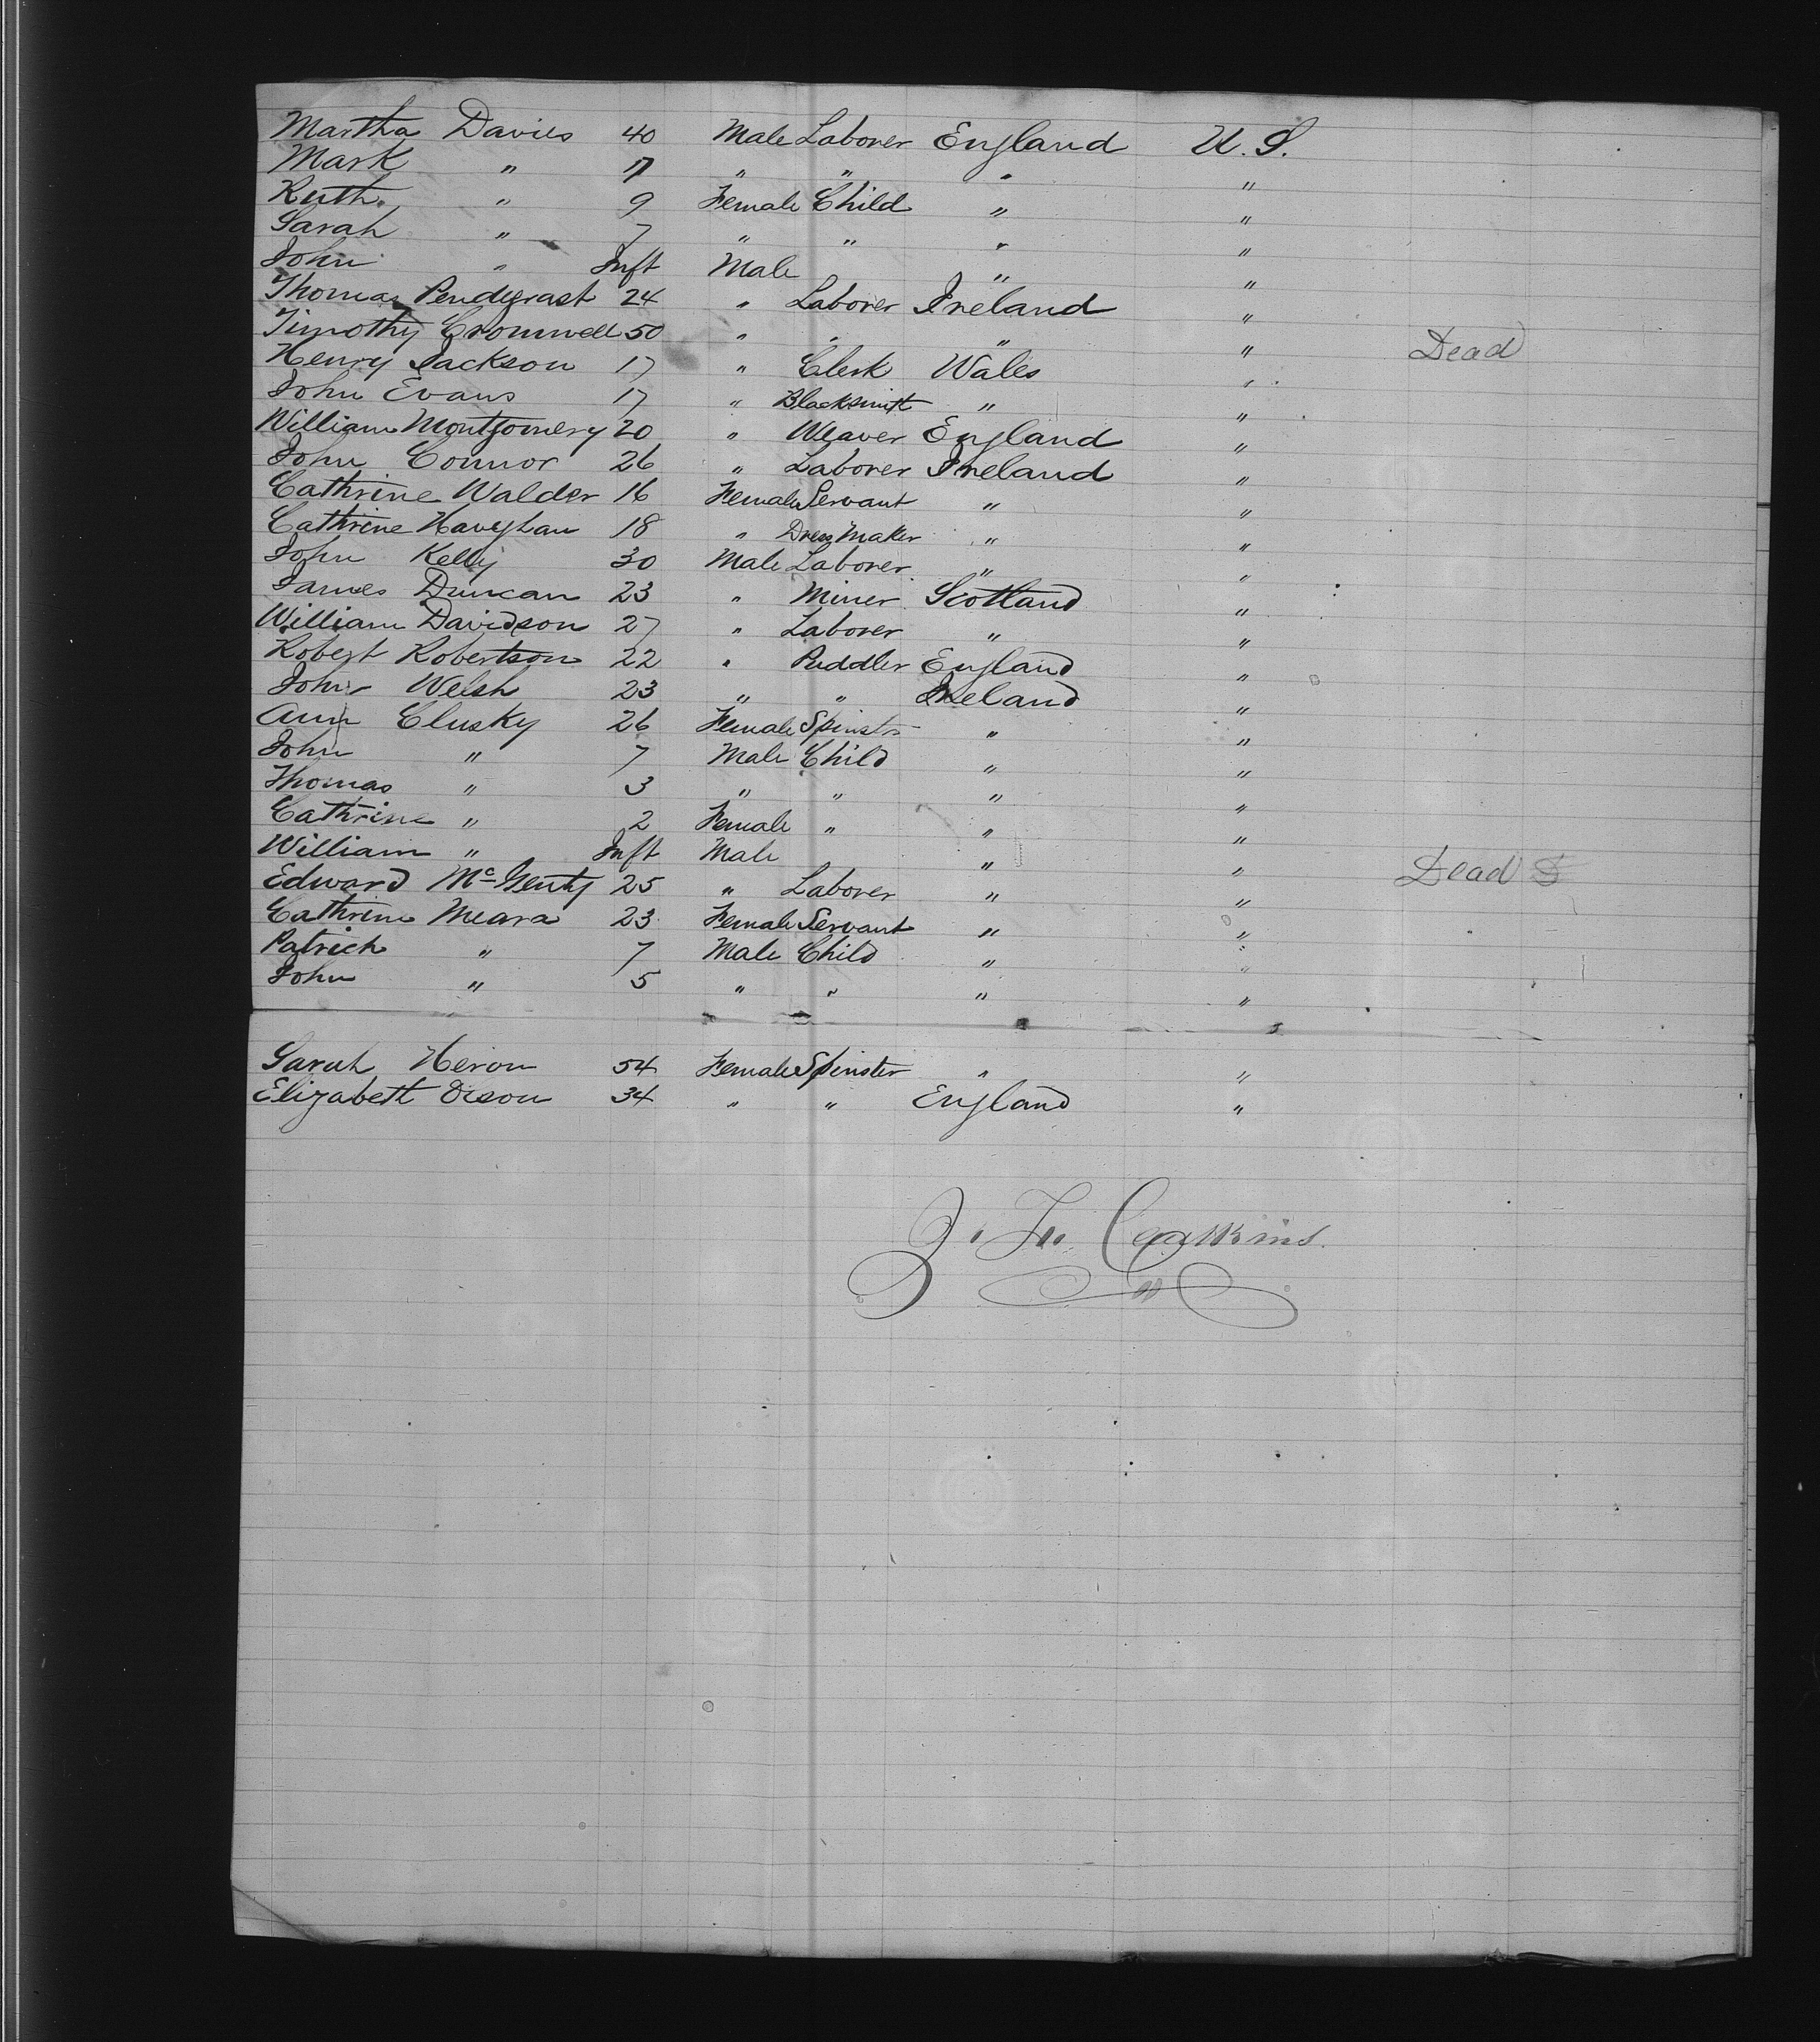 Martha Davies 40 Male Laborer England U.S.
Mark " 11 " " " "
Ruth " 9 Female Child " "
Sarah " 7 " " " "
John " Inft Male " "
Thomas Pendegrast 24 " Laborer Ireland "
Timothy Cromwell 50 " " " " Dead
Henry Jackson 17 " Clerk Wales "
John Evans 17 " Blacksmith " "
William Montgomery 20 " Weaver England "
John Connor 26 " Laborer Ireland "
Cathrine Walder 16 Female Servant " "
Cathrine 18 " Dress Maker " "
John Kelly 30 Male Laborer " "
James Duncan 23 " Miner Scotland "
William Davidson 27 " Laborer " "
Robert Robertson 22 " Puddler England "
John Welsh 23 " " Ireland "
Ann Clusky 26 Female Spinstr " "
John " 7 Male Child " "
Thomas " 3 " " " "
Cathrine " 2 Female " " "
William " Inft Male " " Dead
Edward 25 " Laborer " "
Cathrine Meara 23 Female Servant " "
Patrick " 7 Male Child " "
John " 5 " " " "
Sarah Heron 54 Female Spinster " "
Elizabeth 34 " " England "